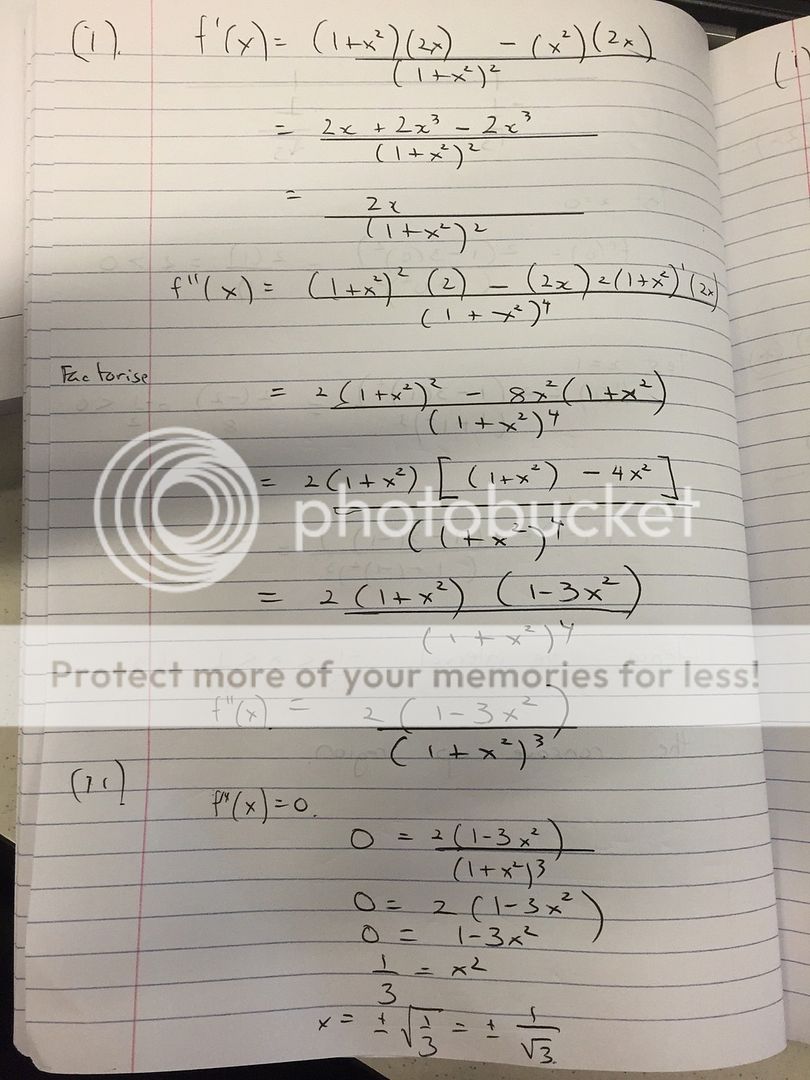 (i). f'(x) = (1+x²)(2x) - (x²)(2x) / (1+x²)²
= 2x + 2x³ - 2x³ / (1+x²)²
= 2x / (1+x²)²
f''(x) = (1+x²)² (2) - (2x) 2(1+x²)¹(2x) / (1+x²)⁴
Factorise
= 2(1+x²)² - 8x²(1+x²) / (1+x²)⁴
= 2(1+x²) [(1+x²) - 4x²] / (1+x²)⁴
photobucket
= 2(1+x²) (1-3x²) / (1+x²)⁴
Protect more of your memories for less!
f''(x) = 2(1-3x²) / (1+x²)³
(ii)
f''(x) = 0.
0 = 2(1-3x²) / (1+x²)³
0 = 2(1-3x²)
0 = 1-3x²
1/3 = x²
x = ± √(1/3) = ± 1/√3.